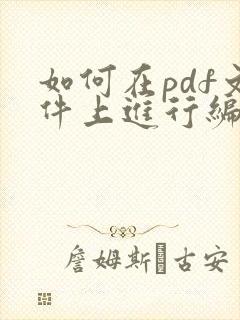 如何在pdf文
件上進行編
詹姆斯 古安